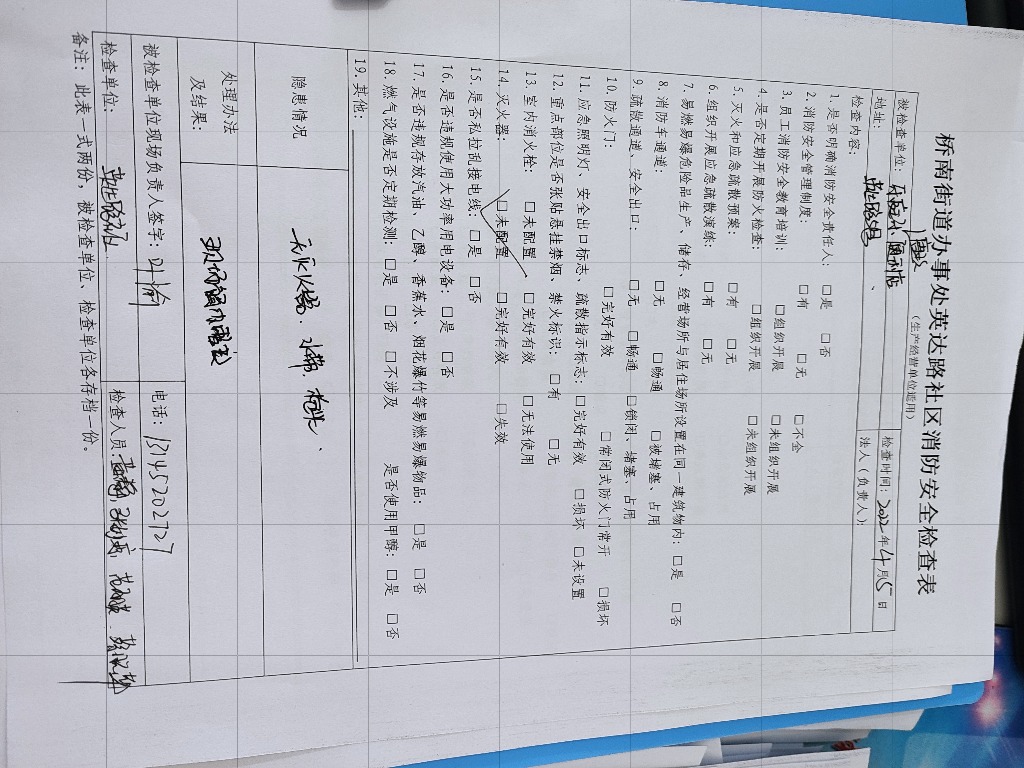 桥南街道办事处英达路社区消防安全检查表
（生产经营单位适用）
被检查单位： 检查时间：2022年4月15日
地址： 法人（负责人）：
检查内容：
1. 是否明确消防安全责任人： □是 □否
2. 消防安全管理制度： □有 □无 □不全
3. 员工消防安全教育培训： □组织开展 □未组织开展
4. 是否定期开展防火检查： □组织开展 □未组织开展
5. 灭火和应急疏散预案： □有 □无
6. 组织开展应急疏散演练： □有 □无
7. 易燃易爆危险品生产、储存、经营场所与居住场所设置在同一建筑物内：□是 □否
8. 消防车通道： □无 □畅通 □被堵塞、占用
9. 疏散通道、安全出口： □无 □畅通 □锁闭、堵塞、占用
10. 防火门： □完好有效 □常闭式防火门常开 □损坏
11. 应急照明灯、安全出口标志、疏散指示标志：□完好有效 □损坏 □未设置
12. 重点部位是否张贴悬挂禁烟、禁火标识：□有 □无
13. 室内消火栓： □未配置 □完好有效 □无法使用
14. 灭火器： □未配置 □完好有效 □失效
15. 是否私拉乱接电线：□是 □否
16. 是否违规使用大功率用电设备：□是 □否
17. 是否违规存放汽油、乙醇、香蕉水、烟花爆竹等易燃易爆物品：□是 □否
18. 燃气设施是否定期检测：□是 □否 □不涉及 是否使用甲醇：□是 □否
19. 其他：
隐患情况 无灭火器、水带、枪头.
处理办法
及结果：
被检查单位现场负责人签字： 电话：13145202727
检查单位： 检查人员：
备注：此表一式两份，被检查单位、检查单位各存档一份。